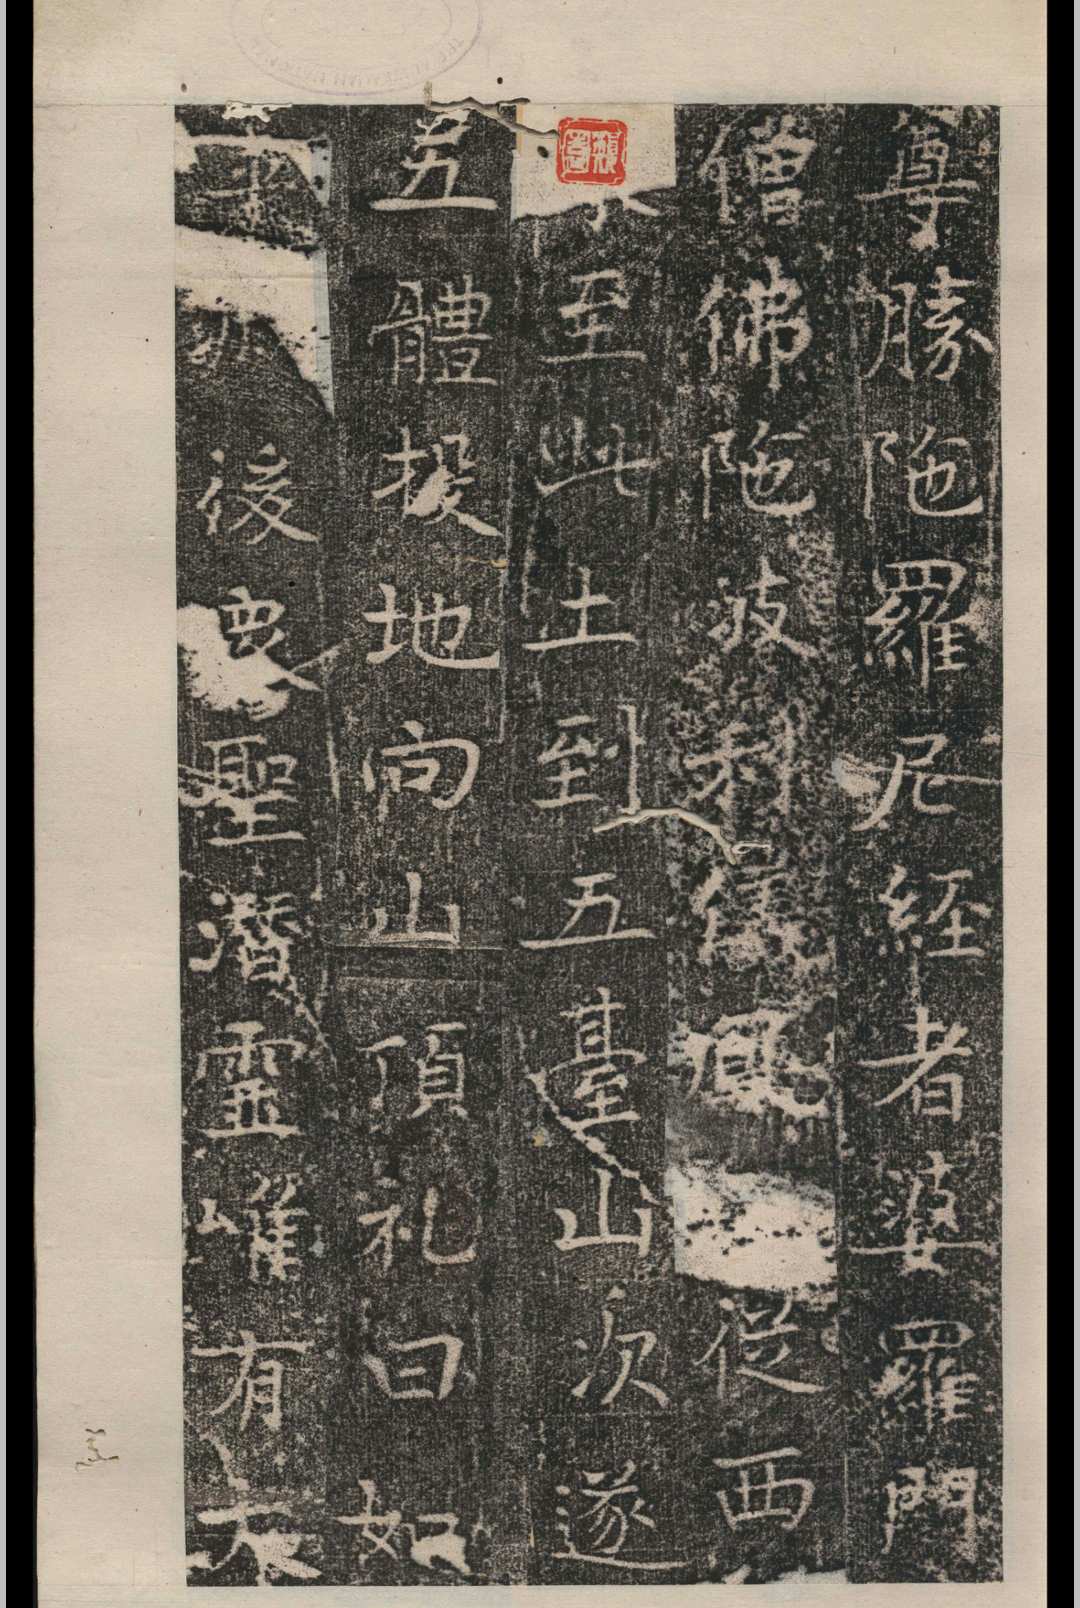 尊勝陁羅尼經者婆羅門
僧佛陁波利儀鳳從西
来至此土到五臺山次遂
五體投地向山頂礼曰如
来滅後衆聖潜靈唯有大